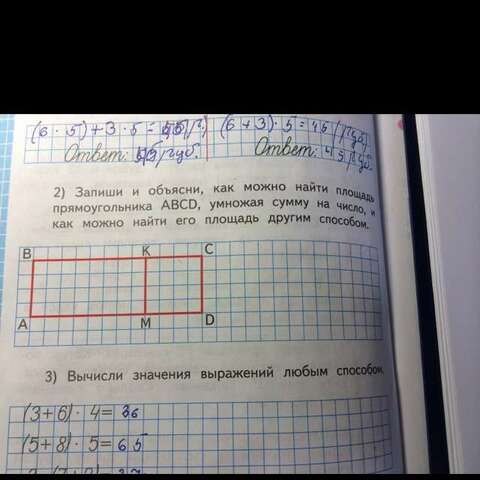 (6 · 5) + 3 · 5 = 45 (р.) (6 + 3) · 5 = 45 (руб)
Ответ: 45 руб. Ответ: 45 руб.
2) Запиши и объясни, как можно найти площадь
прямоугольника ABCD, умножая сумму на число, и
как можно найти его площадь другим способом.
B K C
A M D
3) Вычисли значения выражений любым способом.
(3+6) · 4 = 36
(5+8) · 5 = 65